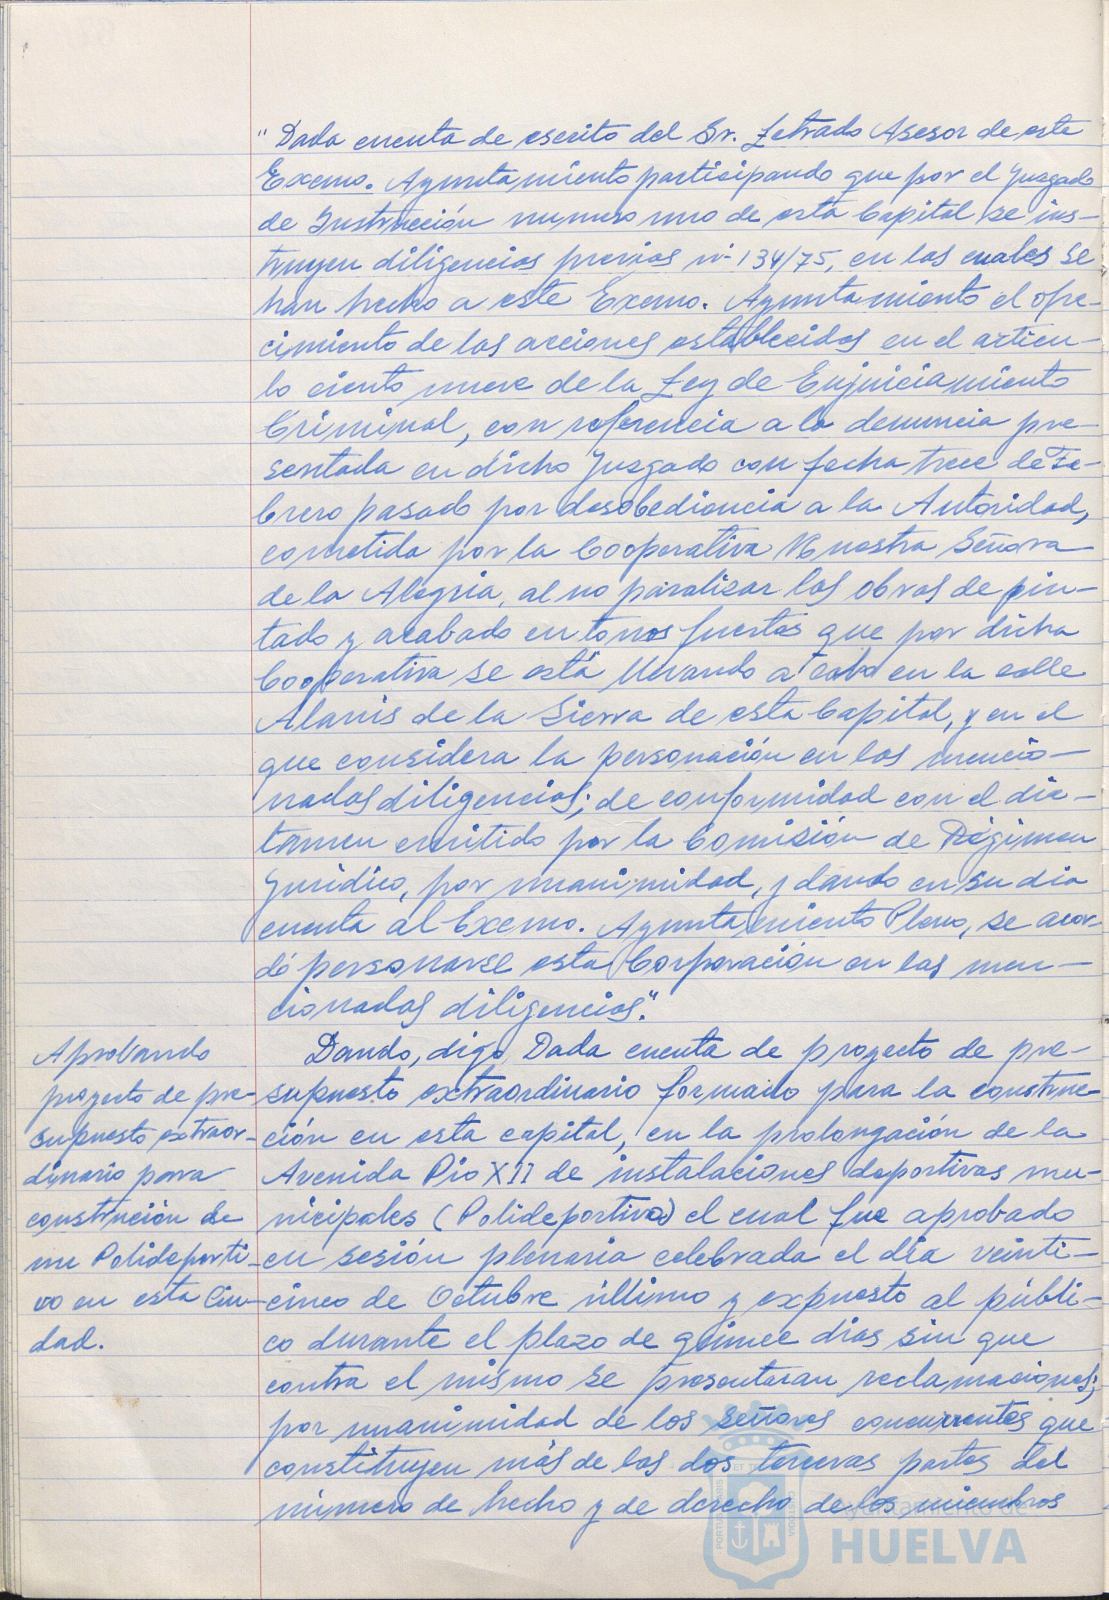 "Dada cuenta de escrito del Sr. Letrado Asesor de este
Excmo. Ayuntamiento participando que por el Juzgado
de Instrucción numero uno de esta Capital se ins-
truyen diligencias previas nº 134/75, en las cuales se
han hecho a este Excmo. Ayuntamiento el ofre-
cimiento de las acciones establecidas en el artícu-
lo ciento nueve de la Ley de Enjuiciamiento
Criminal, con referencia a la denuncia pre-
sentada en dicho Juzgado con fecha trece de Fe-
brero pasado por desobediencia a la Autoridad,
cometida por la Cooperativa Nuestra Señora
de la Alegria, al no paralizar las obras de pin-
tado y acabado en tonos fuertes que por dicha
Cooperativa se está llevando a cabo en la calle
Alanis de la Sierra de esta Capital, y en el
que considera la personación en las mencio-
nadas diligencias; de conformidad con el dic-
tamen emitido por la Comisión de Régimen
Jurídico, por unanimidad, y dando en su dia
cuenta al Excmo. Ayuntamiento Pleno, se acor-
dó personarse esta Corporación en las men-
cionadas diligencias."
Aprobando
proyecto de pre-
supuesto extraor-
dinario para
construción de
un Polideporti-
vo en esta Ciu-
dad.
Dando, digo, Dada cuenta de proyecto de pre-
supuesto extraordinario formado para la construc-
ción en esta capital, en la prolongación de la
Avenida Pio XII de instalaciones deportivas mu-
nicipales (Polideportivo) el cual fue aprobado
en sesión plenaria celebrada el día veinti-
cinco de Octubre último y expuesto al públi-
co durante el plazo de quince dias sin que
contra el mismo se presentaran reclamaciones;
por unanimidad de los señores concurrentes que
constituyen más de las dos terceras partes del
número de hecho y de derecho de los miembros
Ayuntamiento de
HUELVA